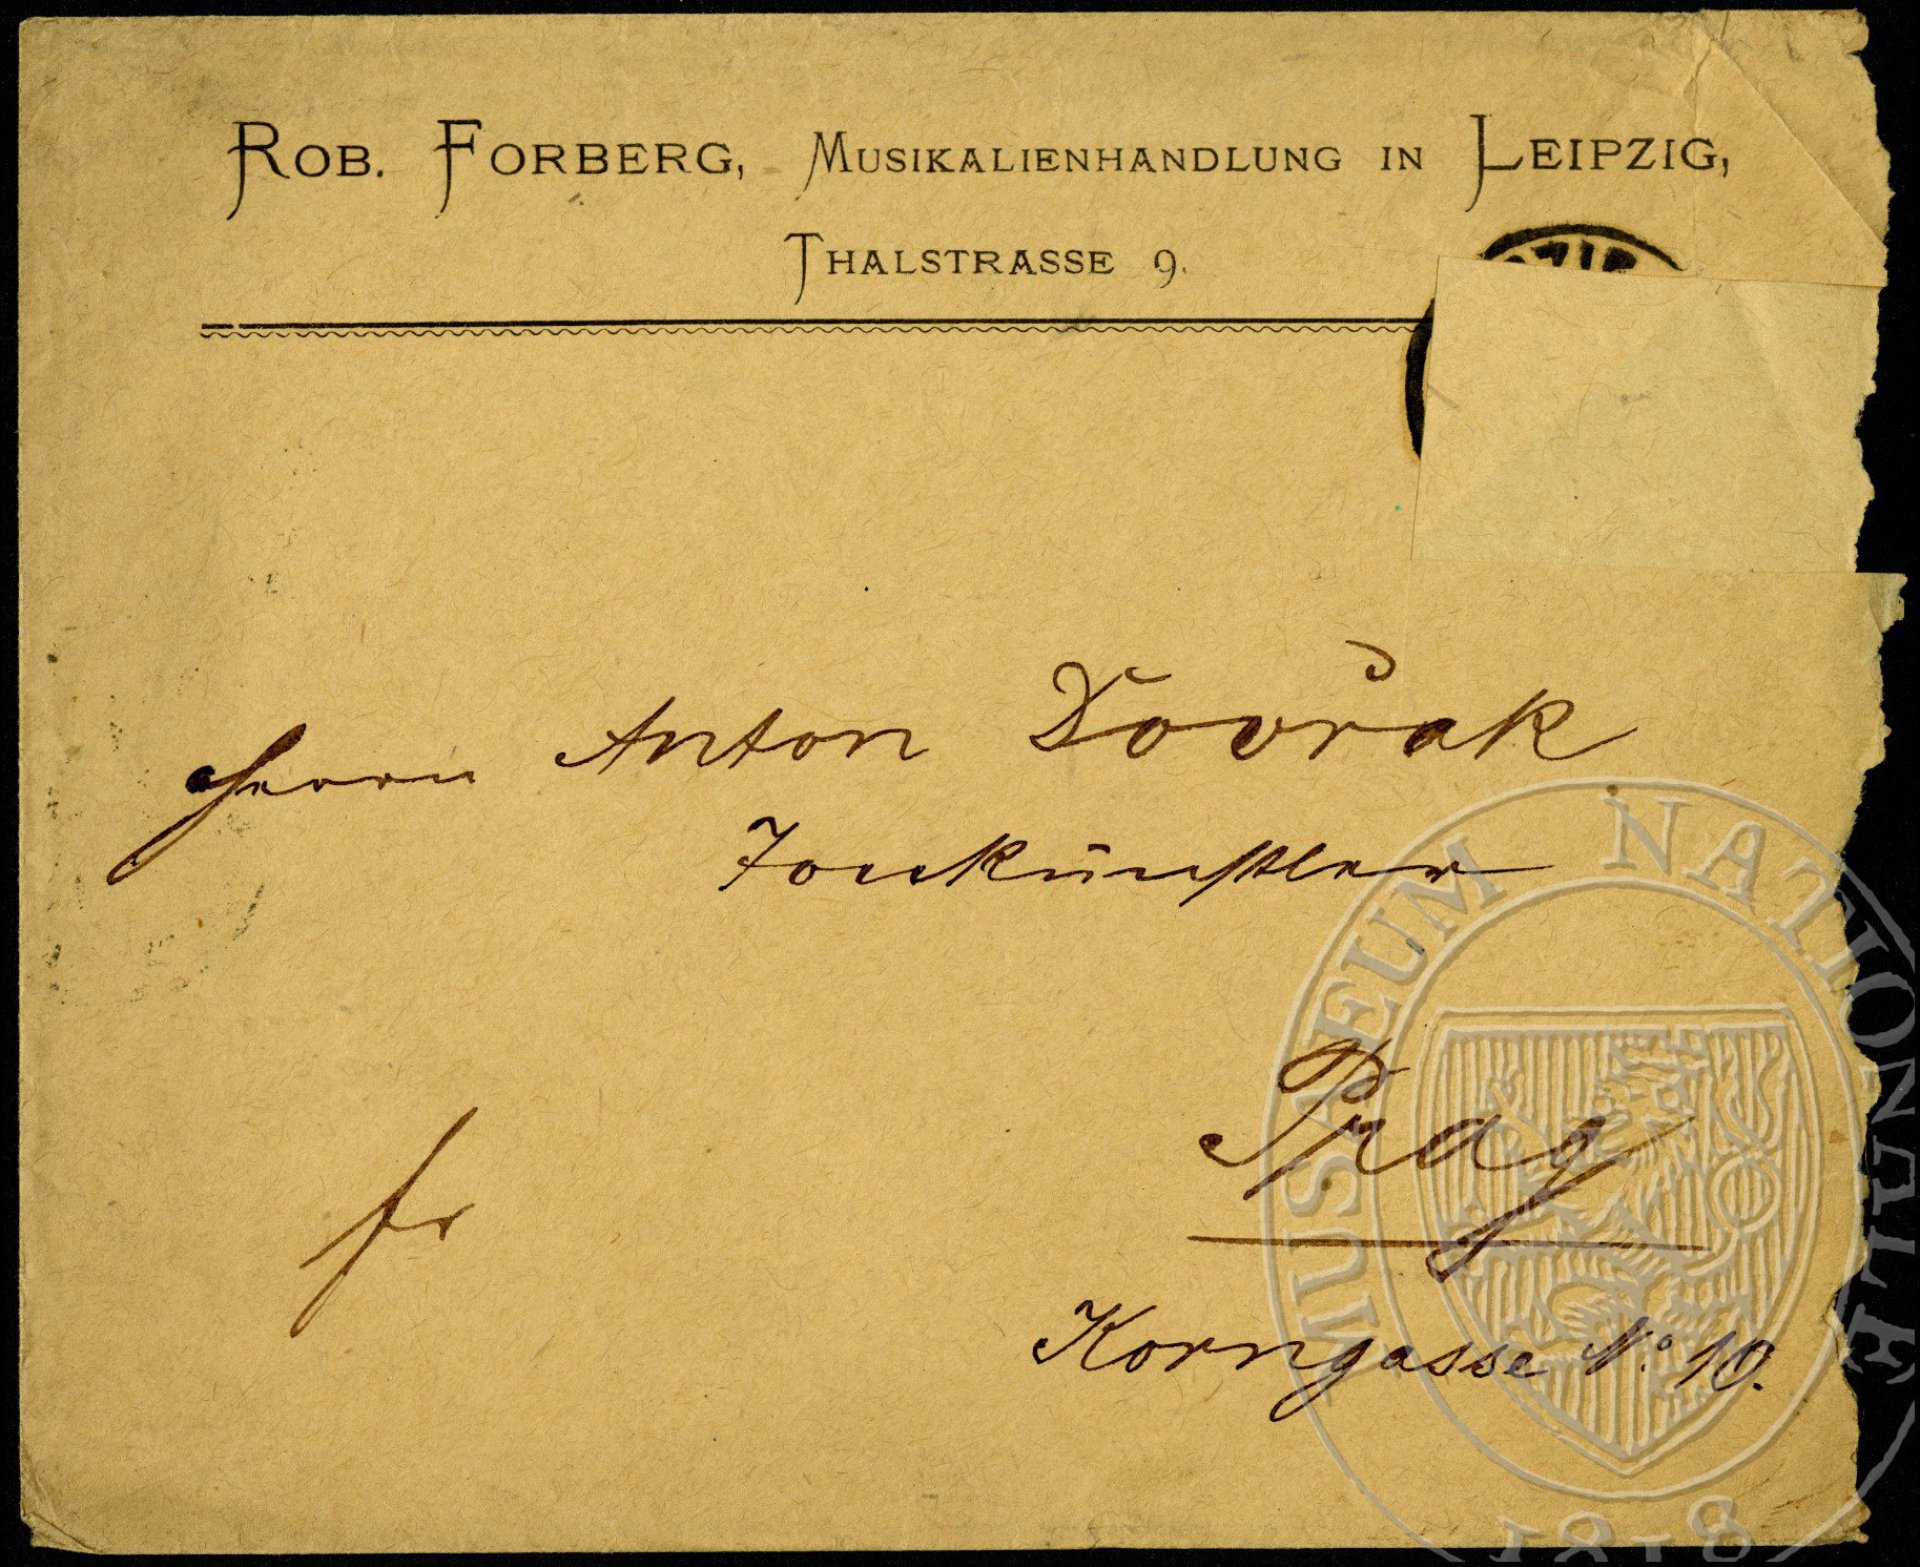 ROB. FORBERG, MUSIKALIENHANDLUNG IN LEIPZIG,
THALSTRASSE 9.
Herrn Anton Dovřak
Tonkünstler
fr
Prag
Korngasse No. 10.
MUSAEUM NATIONALE
1818